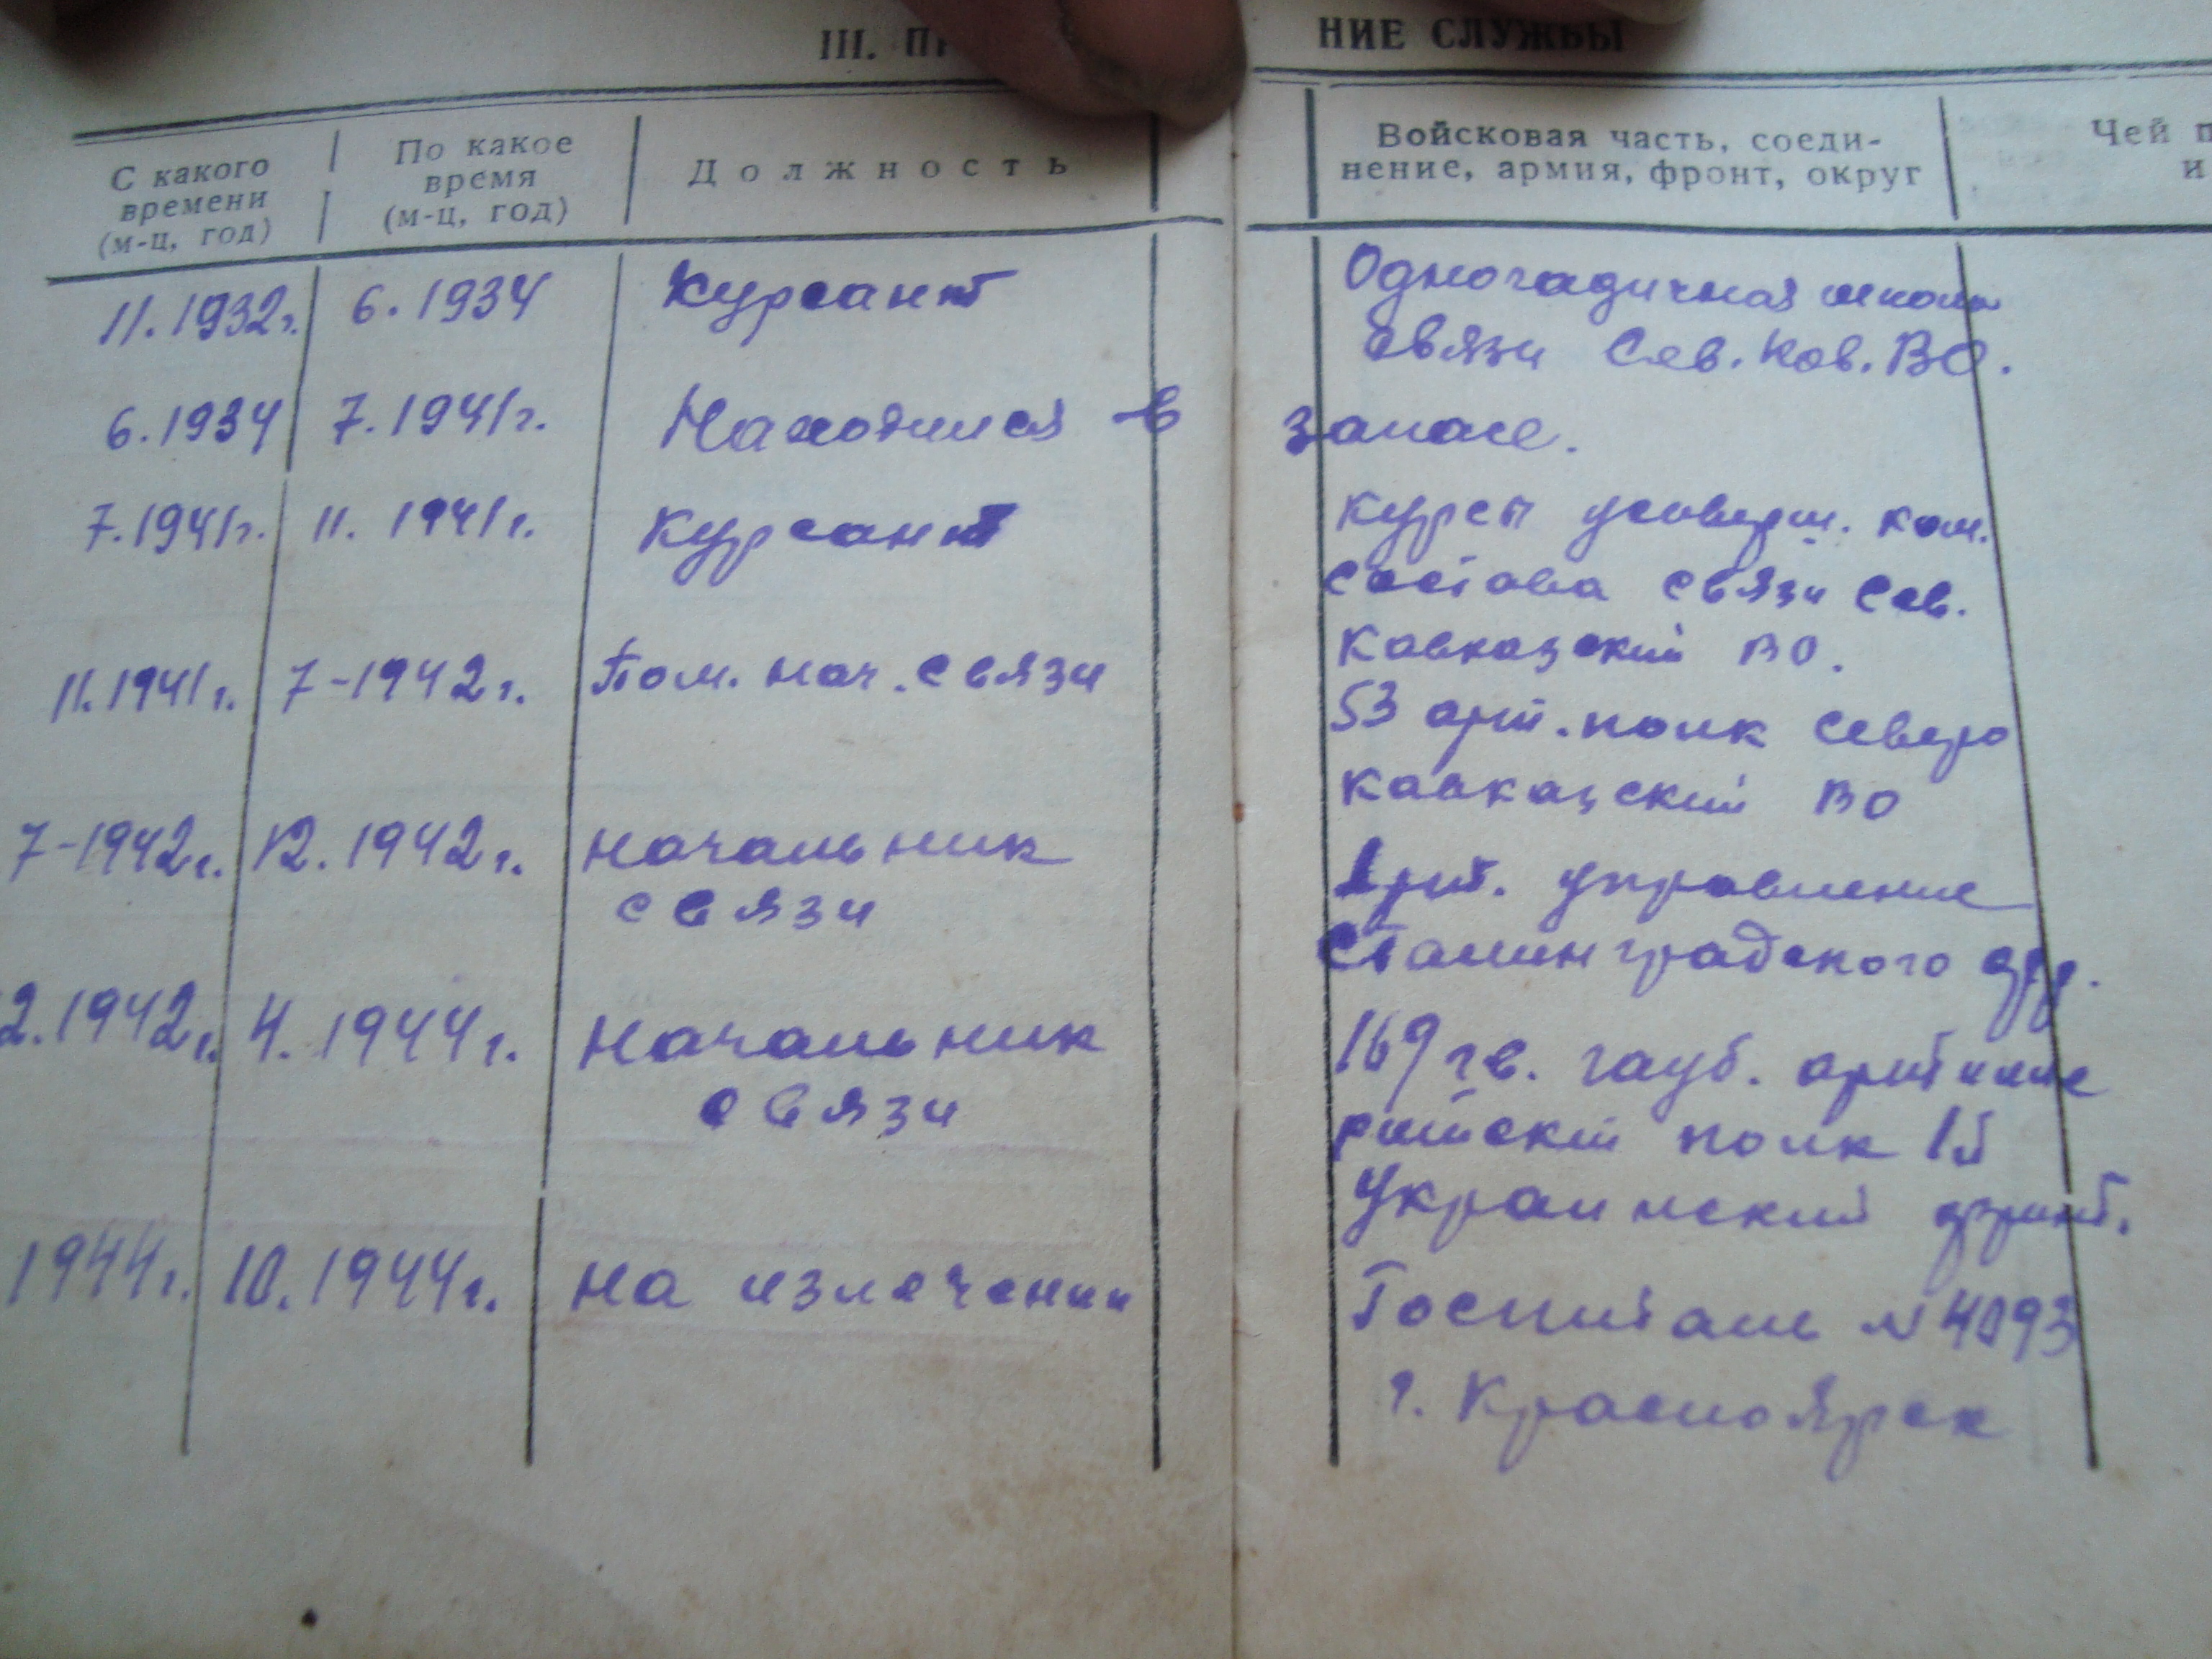 III. П НИЕ СЛУЖБЫ
С какого
времени
(м-ц, год)
По какое
время
(м-ц, год)
Должность
Войсковая часть, соеди-
нение, армия, фронт, округ
Чей п
и
11.1932г. 6.1934 Курсант Одногодичная школа
связи Сев. Кав. ВО.
6.1934 7.1941г. Находился в запасе.
7.1941г. 11.1941г. Курсант Курсы усоверш. ком.
состава связи Сев.
Кавказский ВО.
11.1941г. 7-1942г. Пом. нач. связи 53 арт. полк Северо
Кавказский ВО
7-1942г. 12.1942г. Начальник Арт. управление
связи Сталинградского фр.
2.1942г. 4.1944г. Начальник 169 гв. гауб. артилле
связи рийский полк 1й
Украинский фронт.
1944г. 10.1944г. На излечении Госпиталь N 4093
г. Красноярск